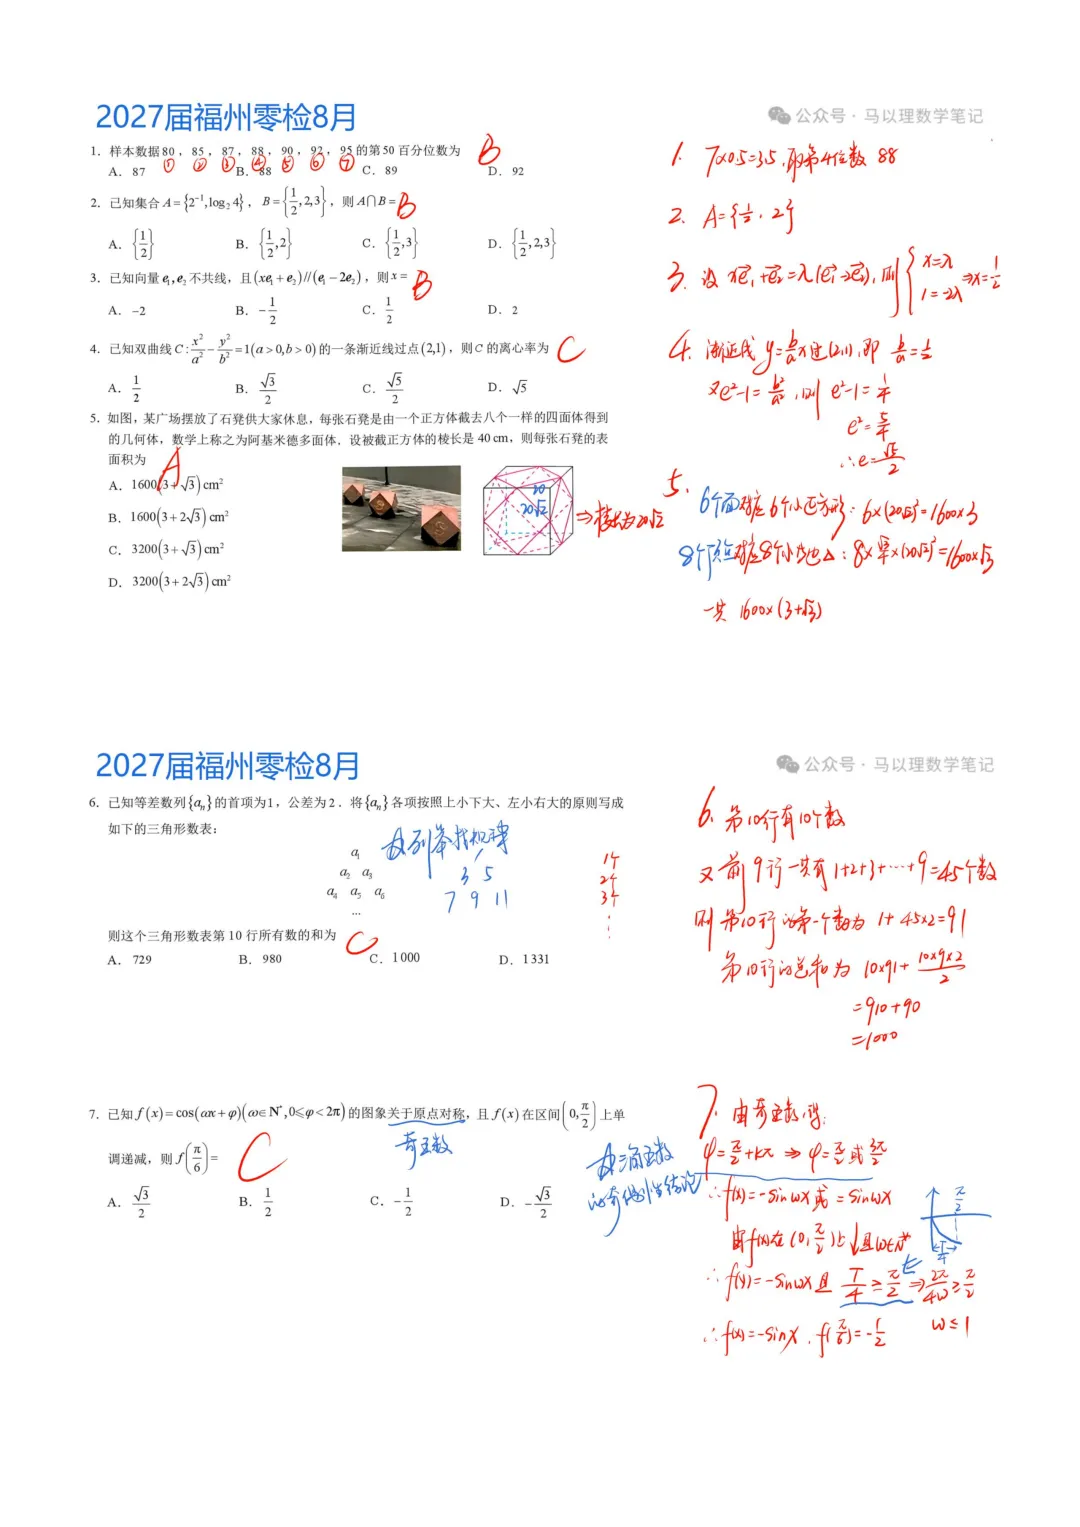 2027届福州零检8月
公众号·马以理数学笔记
1. 样本数据80，85，87，88，90，92，95的第50百分位数为 B
① ② ③ ④ ⑤ ⑥ ⑦
A. 87 B. 88 C. 89 D. 92
2. 已知集合A={2⁻¹,log₂4}，B={1/2,2,3}，则A∩B= B
A. {1/2} B. {1/2,2} C. {1/2,3} D. {1/2,2,3}
3. 已知向量e₁,e₂不共线，且(xe₁+e₂)//(e₁−2e₂)，则x= B
A. −2 B. −1/2 C. 1/2 D. 2
4. 已知双曲线C:x²/a²−y²/b²=1(a>0,b>0)的一条渐近线过点(2,1)，则C的离心率为 C
A. 1/2 B. √3/2 C. √5/2 D. √5
5. 如图，某广场摆放了石凳供大家休息，每张石凳是由一个正方体截去八个一样的四面体得到
的几何体，数学上称之为阿基米德多面体．设被截正方体的棱长是40cm，则每张石凳的表
面积为 A
A. 1600(3+√3)cm²
B. 1600(3+2√3)cm²
C. 3200(3+√3)cm²
D. 3200(3+2√3)cm²
20
20√2
⇒棱长为20√2
1. 7×0.5=3.5,取第4位数 88
2. A={1/2,2}
3. 设xe₁+e₂=λ(e₁-2e₂),则{x=λ
1=-2λ ⇒x=-1/2
4. 渐近线y=b/a x过(2,1),即 b/a=1/2
又e²-1=b²/a²,则 e²-1=1/4
e²=5/4
∴e=√5/2
5. 6个面对应6个小正方形：6×(20√2)²=1600×3
8个顶点对应8个小等边△：8×√3/4×(20√2)²=1600×√3
一共 1600×(3+√3)
2027届福州零检8月
公众号·马以理数学笔记
6. 已知等差数列{aₙ}的首项为1，公差为2．将{aₙ}各项按照上小下大、左小右大的原则写成
如下的三角形数表：
a₁
a₂ a₃
a₄ a₅ a₆
...
列举找规律
1
3 5
7 9 11
1个
2个
3个
⋮
则这个三角形数表第10行所有数的和为 C
A. 729 B. 980 C. 1000 D. 1331
6. 第10行有10个数
又前9行一共有1+2+3+…+9=45个数
则第10行的第一个数为 1+45×2=91
第10行的总和为 10×91+10×9×2/2
=910+90
=1000
7. 已知f(x)=cos(ωx+φ)(ω∈N*,0≤φ<2π)的图象关于原点对称，且f(x)在区间(0,π/2)上单
调递减，则f(π/6)= C
奇函数
A. √3/2 B. 1/2 C. −1/2 D. −√3/2
三角函数
的奇偶性结论
7. 由奇函数得：
φ=π/2+kπ ⇒ φ=π/2或3π/2
∴f(x)=-sinωx或=sinωx
由f(x)在(0,π/2)上↓且ω∈N*
∴f(x)=-sinωx且 T/4≥π/2 ⇒2π/4ω≥π/2
ω≤1
∴f(x)=-sinx,f(π/6)=-1/2
π/2
T/4